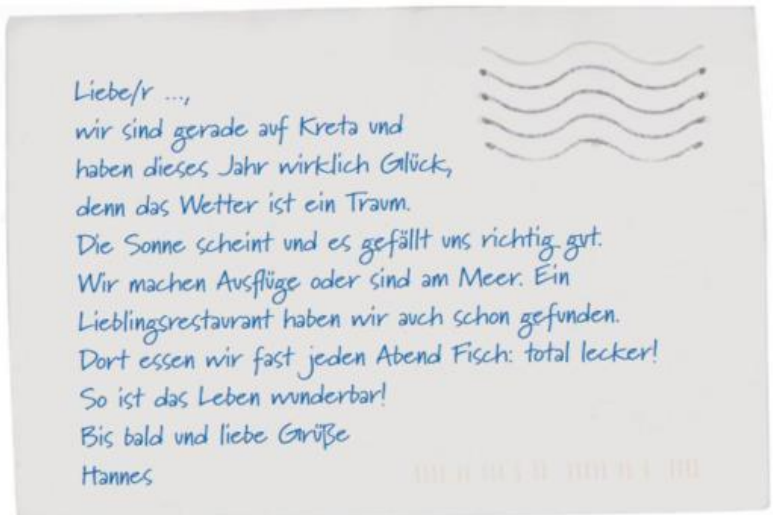 Liebe/r ...,
wir sind gerade auf Kreta und
haben dieses Jahr wirklich Glück,
denn das Wetter ist ein Traum.
Die Sonne scheint und es gefällt uns richtig gut.
Wir machen Ausflüge oder sind am Meer. Ein
Lieblingsrestaurant haben wir auch schon gefunden.
Dort essen wir fast jeden Abend Fisch: total lecker!
So ist das Leben wunderbar!
Bis bald und liebe Grüße
Hannes